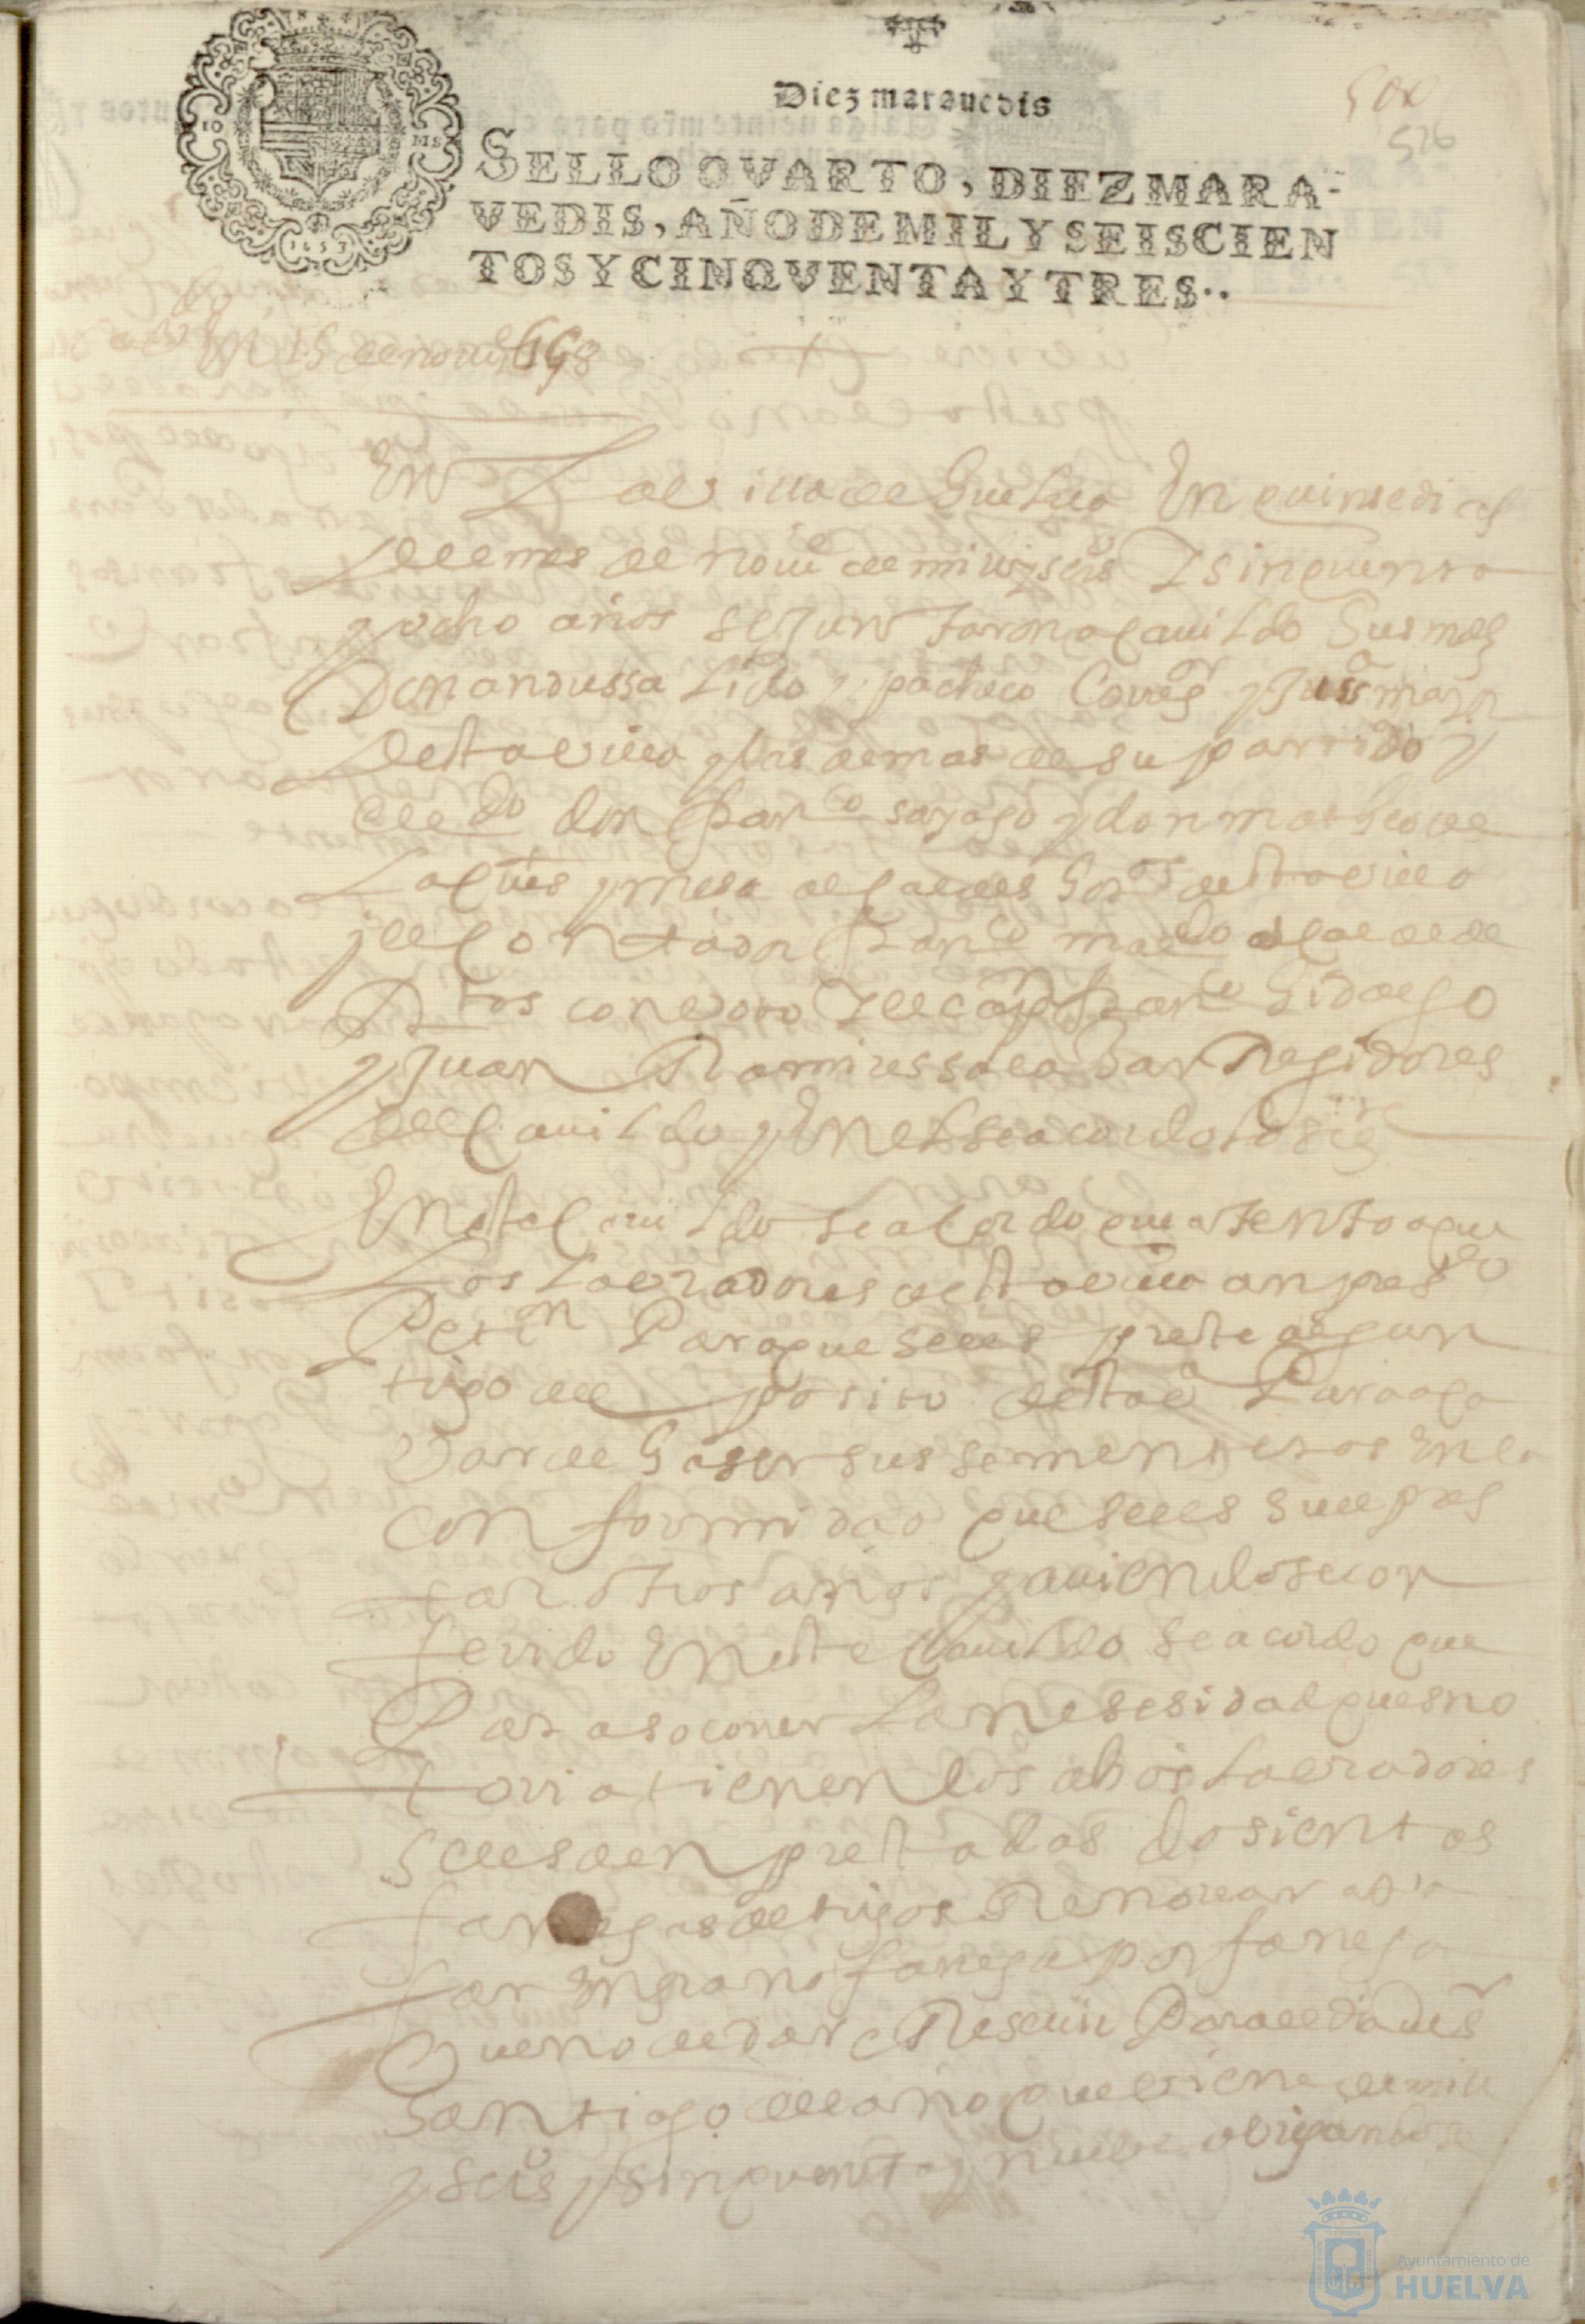 Diez marauedis
500
526
SELLO QVARTO, DIEZ MARA-
VEDIS, AÑO DE MIL Y SEISCIEN
TOS Y CINQVENTA Y TRES..
1653
en 15 de nouᵉ 1658
En La villa de Guelua En quinse dias
del mes de nouᵉ de mill y seisᵒˢ y sinquenta
y ocho años se juntaron a cauildo sus mds
Don andres salsido y pacheco Corregᵒʳ y Justᵃ mayor
desta villa y las demas de su partido y
el ldo don franᶜᵒ sayago y don matheo de
y mesa alcaldes hordᵒˢ desta villa
y el contador franᶜᵒ alcalde de
con voto y el capᵗ franᶜᵒ hidalgo
y Juan Ramires salasar Regidores
del cauildo y En el se acordo lo sigᵗᵉ
En este cauildo se acordo que atento a que
Los labradores desta villa an presᵈᵒ
Petᵒⁿ Para que se les preste algun
trigo del posito desta vᵃ Para aca
var de haser sus sementeras En la
conformidad que se les suele pres
tar otros años y auiendose con
ferido En este cauildo se acordo que
Para socorrer La nesesidad que es no
toria tienen los dhos labradores
se les den prestadas dosientas
fanegas de trigo
En grano fanega por fanega
bueno de dar e Resciuir Para el dia de sʳ
Santiago del año que viene de mill
y seisᵒˢ y sinquenta y nueve obligandose
Ayuntamiento de
HUELVA